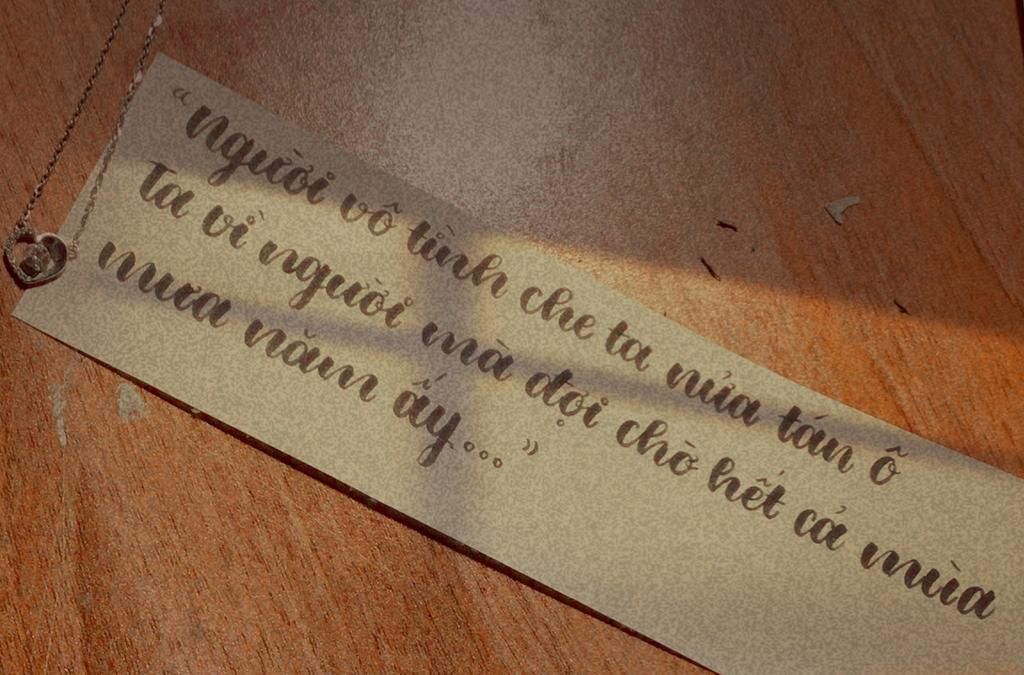 “Người vô tình che ta nửa tán ô
Ta vì người mà đợi chờ hết cả mùa
mưa năm ấy...”